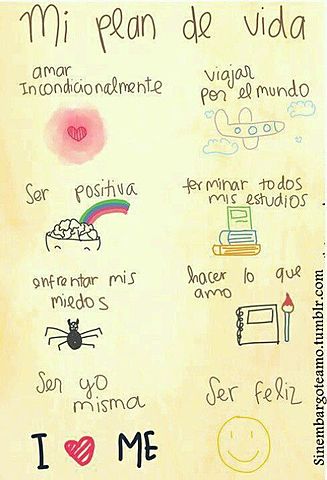 Mi plan de vida
amar
Incondicionalmente
viajar
por el mundo
Ser positiva
terminar todos
mis estudios
enfrentar mis
miedos
hacer lo que
amo
Ser yo
misma
Ser feliz
I ME
Sinembargoteamo.tumblr.com